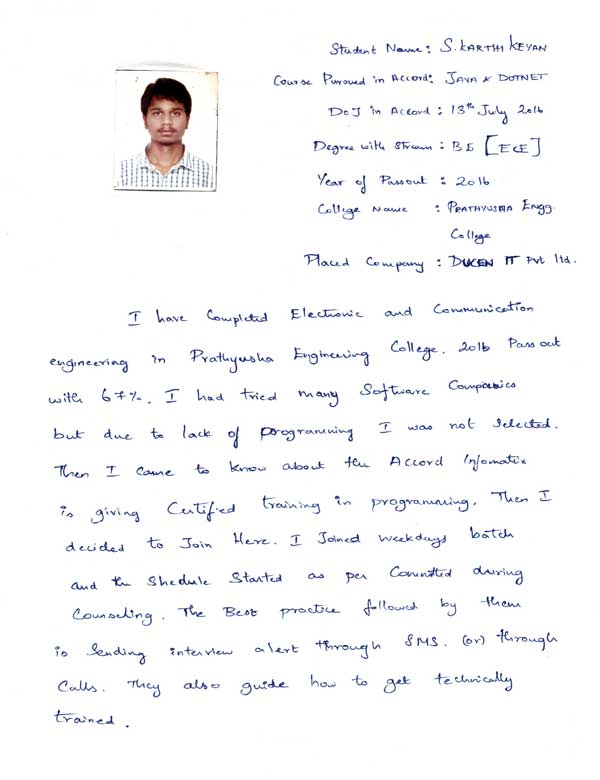 Student Name: S. KARTHI KEYAN
Course Pursued in Accord: JAVA & DOTNET
DOJ in Accord : 13th July 2016
Degree with Stream : BE [ECE]
Year of Passout : 2016
College Name : PRATHYUSHA Engg.
College
Placed Company : DUCEN IT Pvt ltd.
I have Completed Electronic and Communication
engineering in Prathyusha Engineering College. 2016 Pass out
with 67%. I had tried many Software Companies
but due to lack of programming I was not Selected.
Then I came to know about the Accord Infomatix
is giving Certified training in programming. Then I
decided to Join Here. I Joined weekdays batch
and the Shedule Started as per Committed during
Counseling. The Best practice followed by them
is Sending interview alert through SMS. (or) through
Calls. They also guide how to get technically
trained.